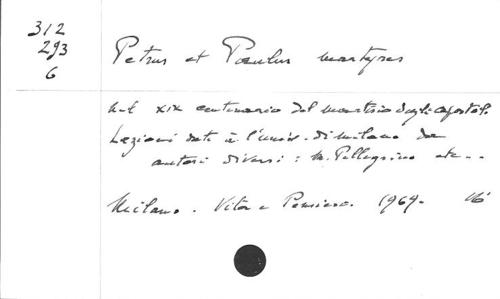 312
293
6
Petrus et Paulus martyres
Nel XIX centenario del martirio degli apostoli.
Lezioni date a l'univ. di Milano da
autori diversi: M. Pellegrino etc..
Milano. Vita e Pensiero. 1969. 16°